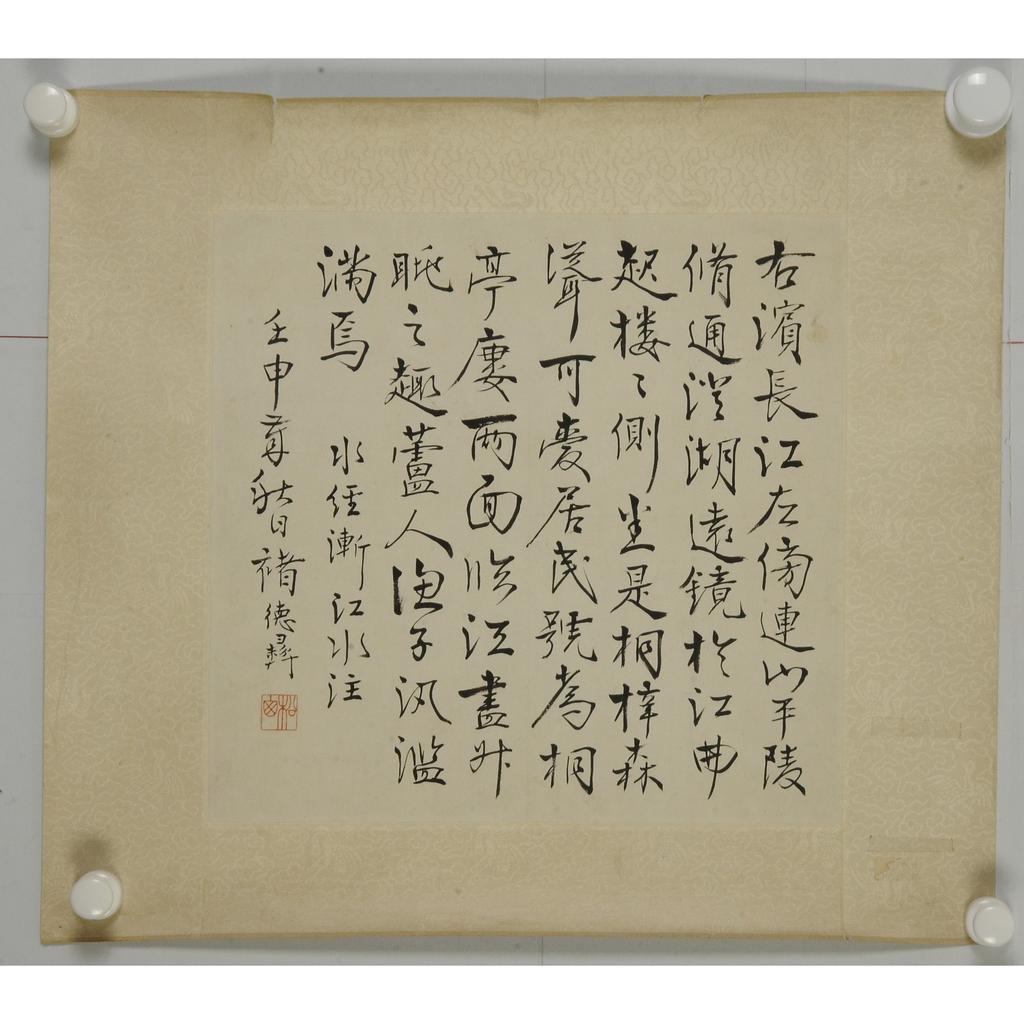 右濱長江左傍連山平陵
脩通澄湖遠鏡於江曲
起樓〻側是桐梓森
聳可愛居民號為桐
亭廔兩面臨江盡升
眺之趣蘆人漁子汎濫
滿焉 水經漸江水注
壬申秋日褚德彝
松窗